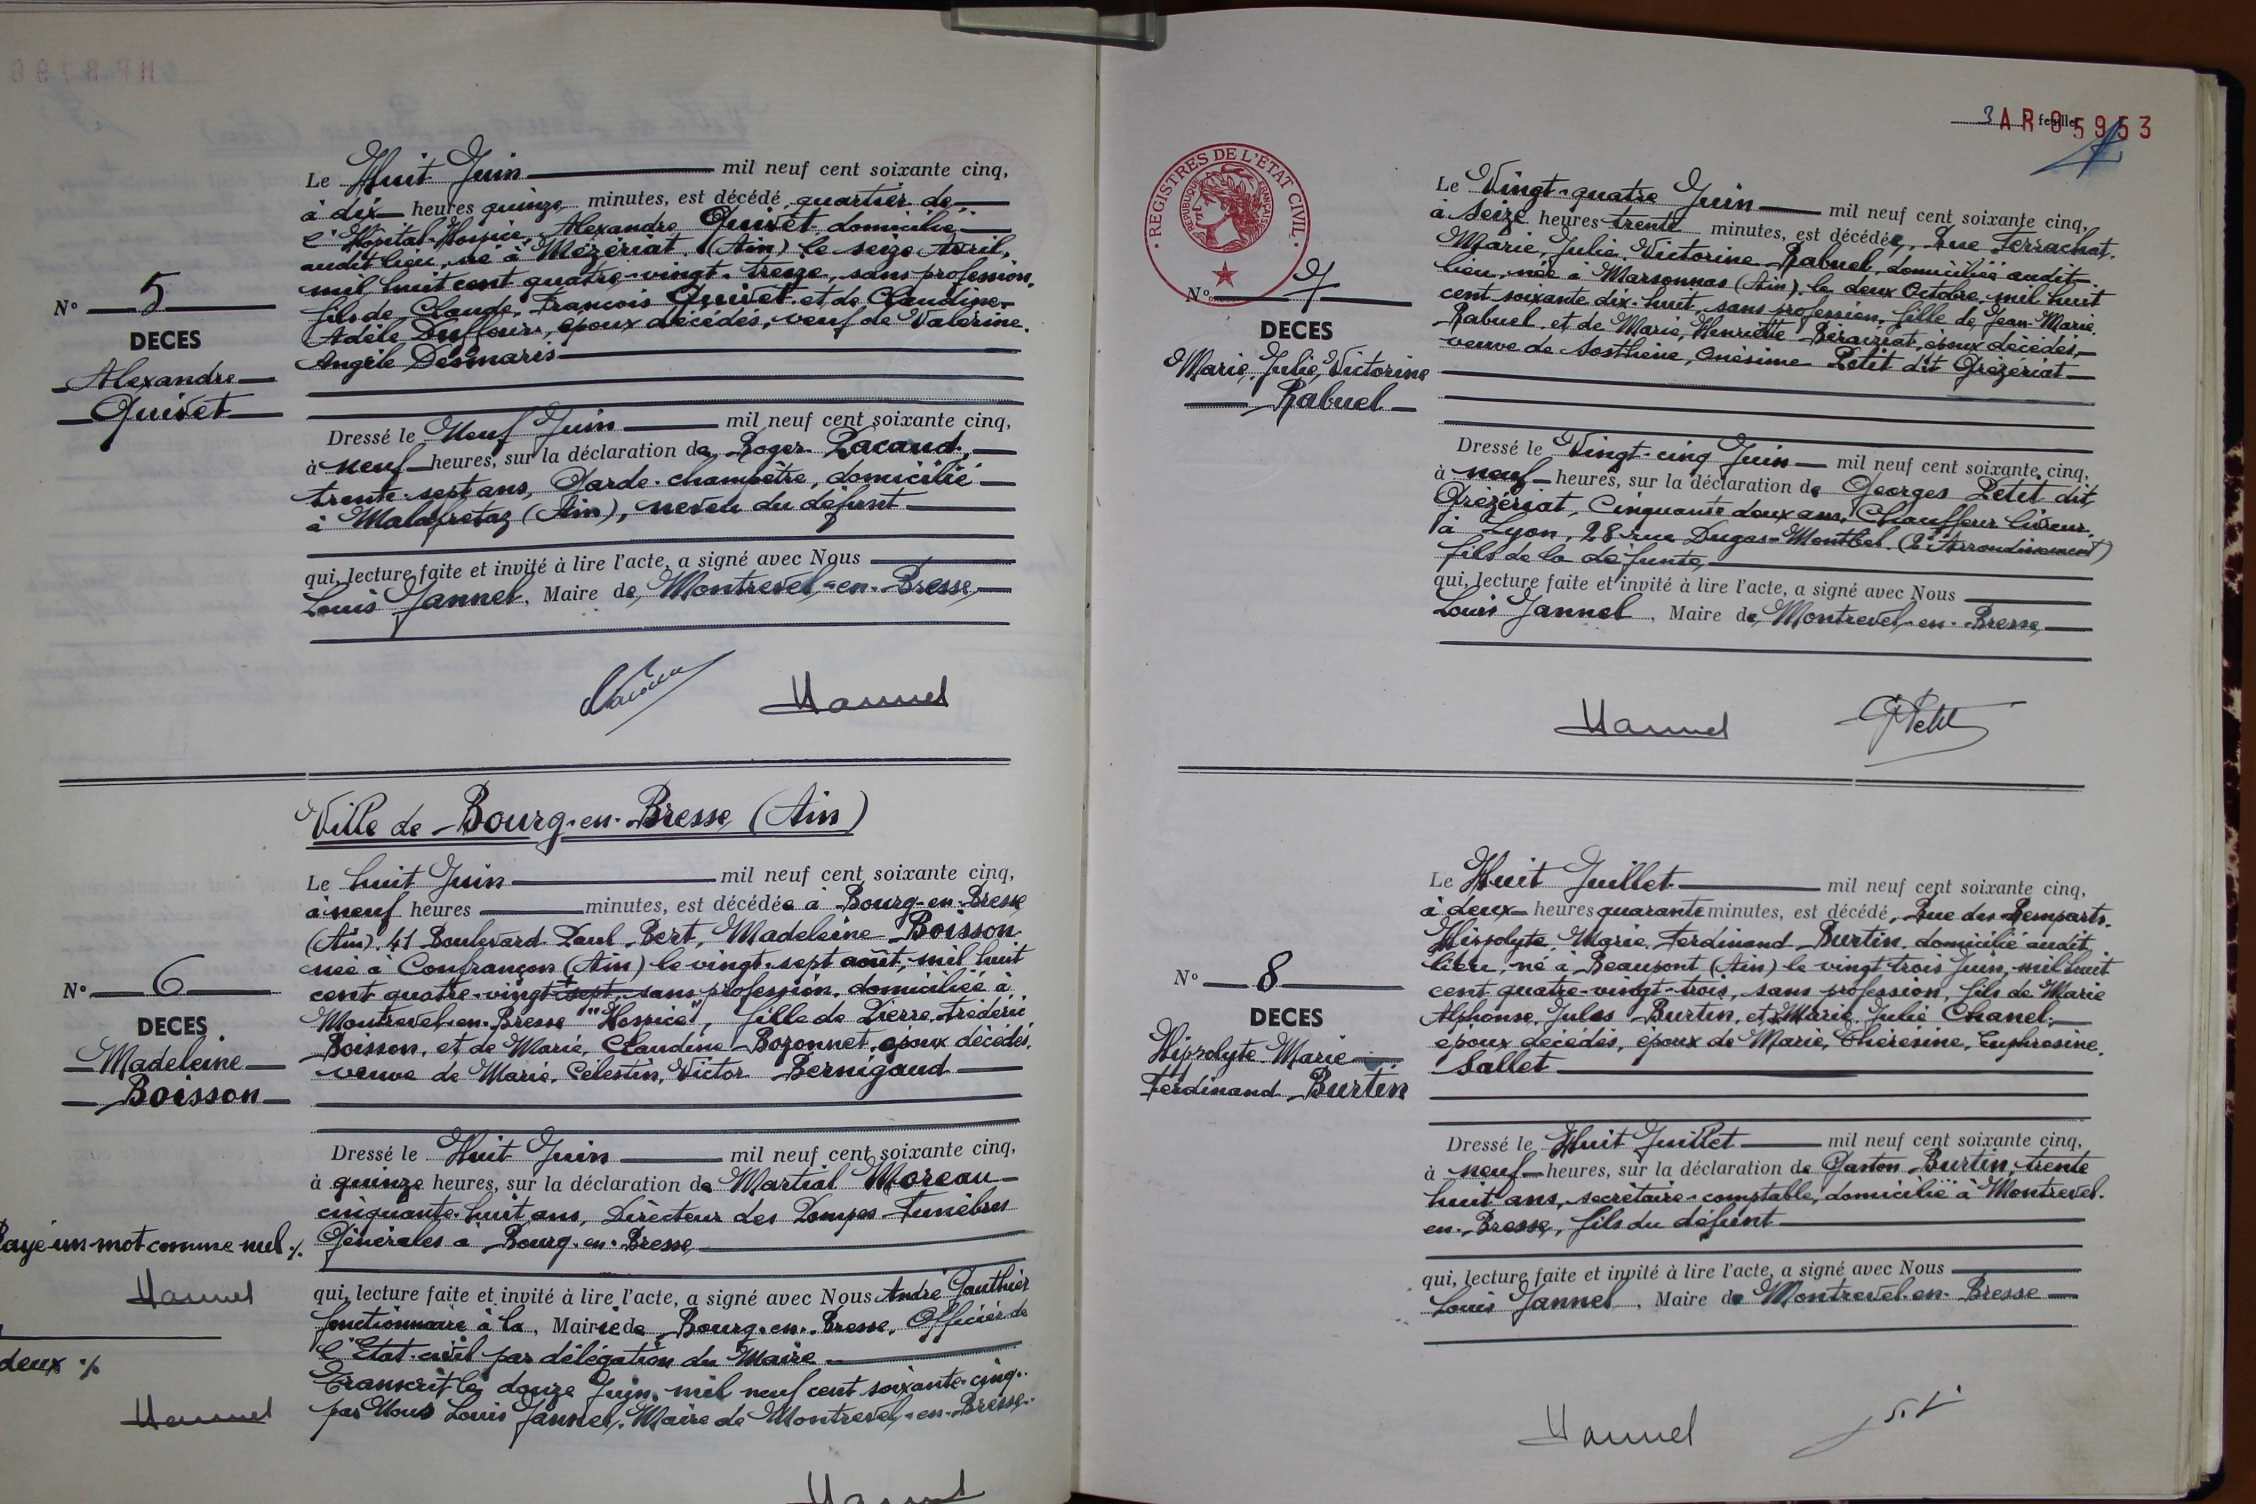 Le Huit Juin mil neuf cent soixante cinq,
à dix heures quinze minutes, est décédé quartier de
l'Hôpital-Hospice, Alexandre Quivet domicilié
audit lieu, né à Mézériat (Ain) le seize Avril,
mil huit cent quatre-vingt-treize, sans profession,
fils de Claude, François Quivet et de Claudine
Adèle Duffour, époux décédés, veuf de Valérine
Angèle Desmaris
N° 5
DECES
Alexandre
Quivet
Dressé le Neuf Juin mil neuf cent soixante cinq,
à neuf heures, sur la déclaration de Roger Pacaud,
trente-sept ans, Garde-champêtre, domicilié
à Malafretaz (Ain), neveu du défunt
qui, lecture faite et invité à lire l'acte, a signé avec Nous
Louis Jannel, Maire de Montrevel-en-Bresse
Jannel
Ville de Bourg-en-Bresse (Ain)
Le huit Juin mil neuf cent soixante cinq,
à neuf heures minutes, est décédée à Bourg-en-Bresse
(Ain), 41 Boulevard Paul Bert, Madeleine Boisson
née à Confrançon (Ain) le vingt-sept août, mil huit
cent quatre-vingt-sept, sans profession, domiciliée à
Montrevel-en-Bresse "Hospice", fille de Pierre, Frédéric
Boisson, et de Marie, Claudine Bozonnet, époux décédés,
veuve de Marie, Célestin, Victor Bernigaud
N° 6
DECES
Madeleine
Boisson
Dressé le Huit Juin mil neuf cent soixante cinq,
à quinze heures, sur la déclaration de Martial Moreau
cinquante-huit ans, Directeur des Pompes Funèbres
Générales à Bourg-en-Bresse
Rayé un mot comme nul ./.
Jannel
deux ./.
Jannel
qui, lecture faite et invité à lire l'acte, a signé avec Nous André Gauthier
fonctionnaire à la, Mairie de Bourg-en-Bresse, Officier de
l'Etat-civil par délégation du Maire
Transcrit le douze Juin, mil neuf cent soixante-cinq
par Nous Louis Jannel, Maire de Montrevel-en-Bresse.
Jannel
3 feuillet
AR 05953
REGISTRES DE L'ETAT CIVIL
REPUBLIQUE FRANÇAISE
Le Vingt-quatre Juin mil neuf cent soixante cinq,
à seize heures trente minutes, est décédée, Rue Ferrachat,
Marie, Julie, Victorine Rabuel, domiciliée audit
lieu, née à Marsonnas (Ain), le deux Octobre mil huit
cent soixante dix-huit, sans profession, fille de Jean-Marie
Rabuel et de Marie, Henriette Béraiziat, époux décédés,
veuve de Sosthène, Onésime Petit dit Grézériat
N° 7
DECES
Marie, Julie, Victorine
Rabuel
Dressé le Vingt-cinq Juin mil neuf cent soixante cinq,
à neuf heures, sur la déclaration de Georges Petit dit
Grézériat, Cinquante deux ans, Chauffeur livreur
à Lyon, 28 rue Dugas-Montbel (2è Arrondissement)
fils de la défunte
qui, lecture faite et invité à lire l'acte, a signé avec Nous
Louis Jannel, Maire de Montrevel-en-Bresse
Jannel G Petit
Le Huit Juillet mil neuf cent soixante cinq,
à deux heures quarante minutes, est décédé, Rue des Remparts,
Hippolyte, Marie, Ferdinand Burtin, domicilié audit
lieu, né à Beaupont (Ain) le vingt-trois Juin, mil huit
cent quatre-vingt-trois, sans profession, fils de Marie
Alphonse, Jules Burtin, et Marie, Julie Chanel,
époux décédés, époux de Marie, Thérésine, Euphrosine
Sallet
N° 8
DECES
Hippolyte Marie
Ferdinand Burtin
Dressé le Huit Juillet mil neuf cent soixante cinq,
à neuf heures, sur la déclaration de Gaston Burtin, trente
huit ans, secrétaire-comptable, domicilié à Montrevel-
en-Bresse, fils du défunt
qui, lecture faite et invité à lire l'acte, a signé avec Nous
Louis Jannel, Maire de Montrevel-en-Bresse
Jannel